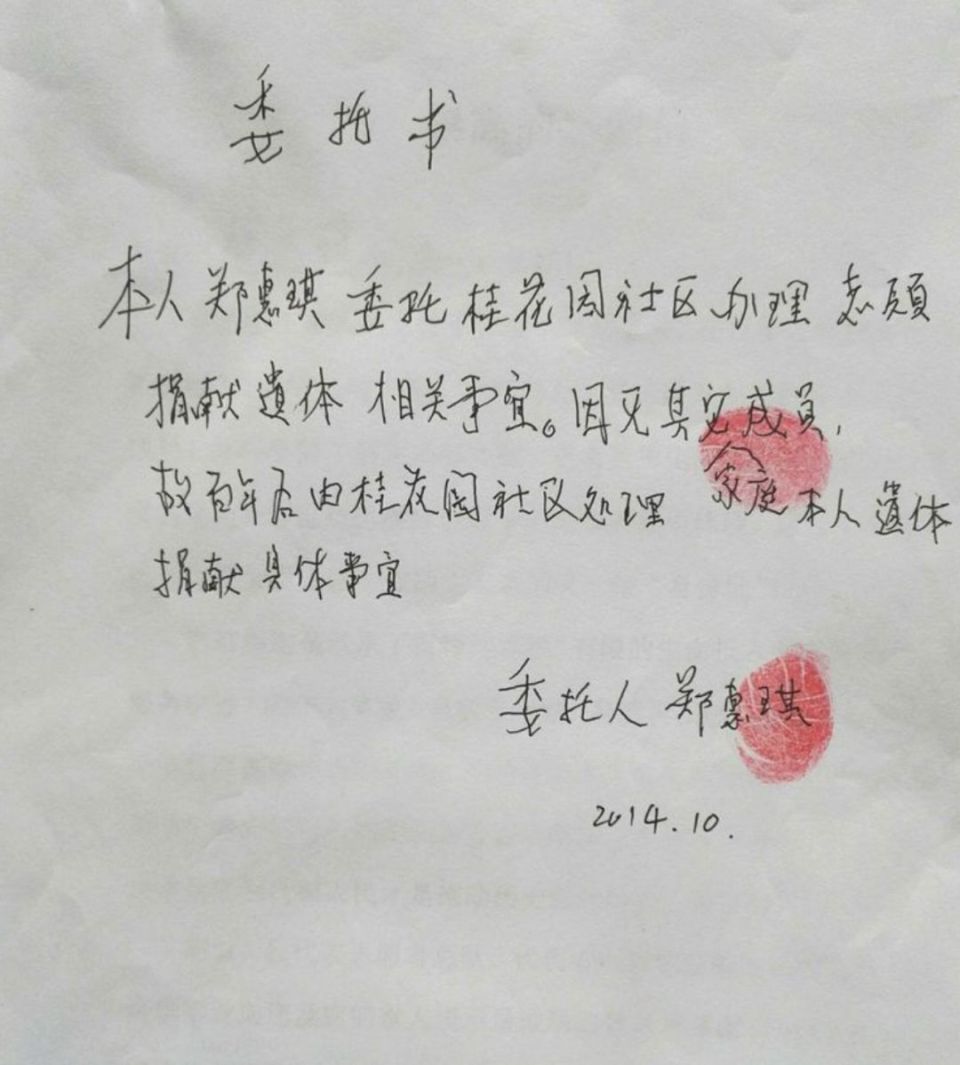 委托书
本人郑惠琪委托桂花园社区办理志愿
捐献遗体相关事宜。因无其它成员,
家庭
故百年后由桂花园社区处理本人遗体
捐献具体事宜
委托人郑惠琪
2014.10.